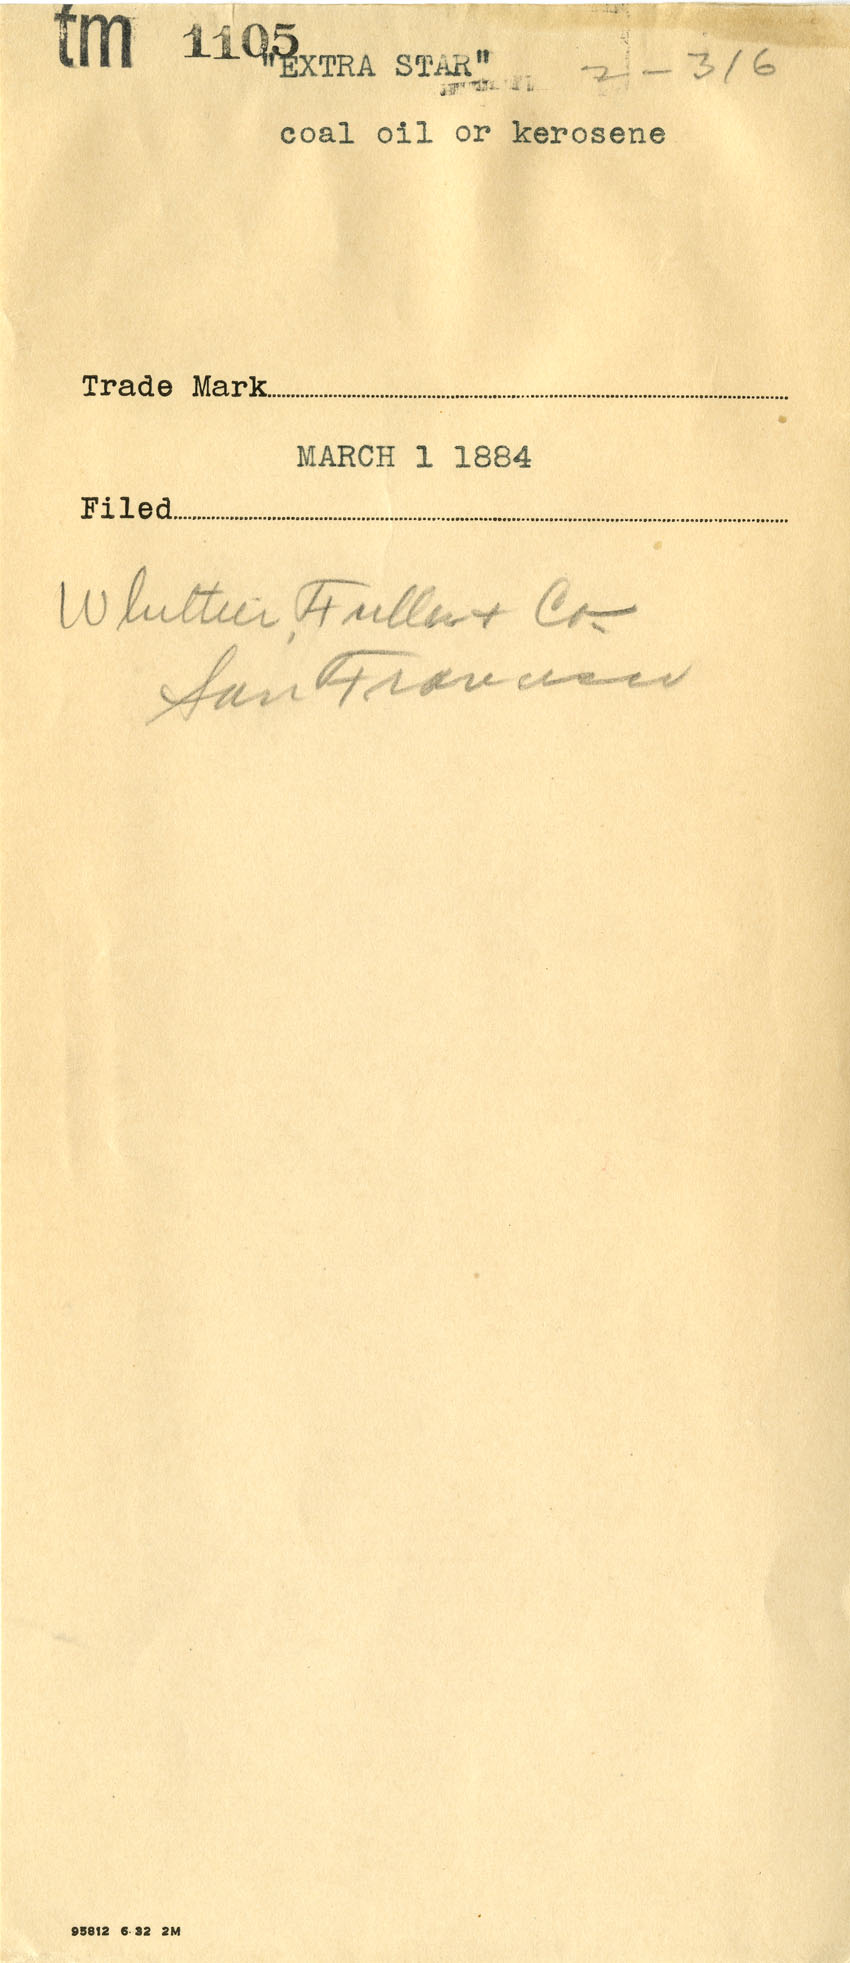 tm 1105
"EXTRA STAR" 2-316
coal oil or kerosene
Trade Mark
MARCH 1 1884
Filed
Whittier, Fuller & Co.
San Francisco
95812 6-32 2M